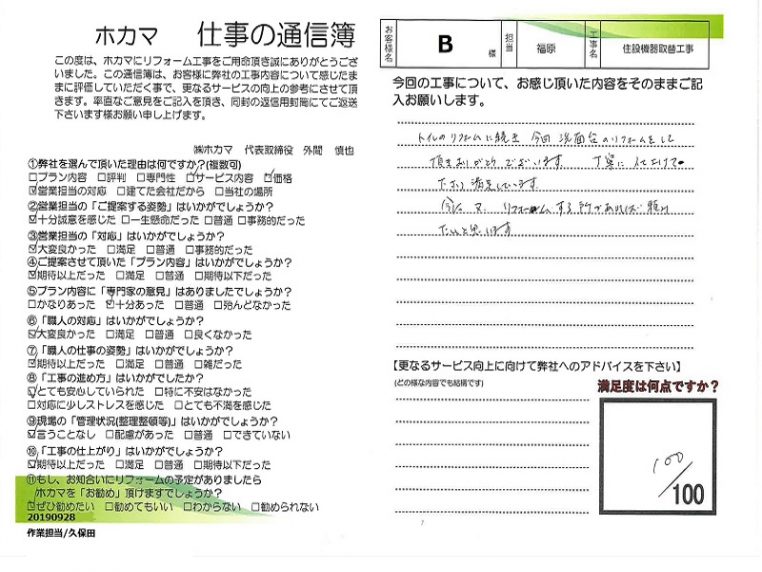 ホカマ 仕事の通信簿
この度は、ホカマにリフォーム工事をご用命頂き誠にありがとうござ
いました。この通信簿は、お客様に弊社の工事内容について感じたま
まに評価していただく事で、更なるサービスの向上の参考にさせて頂
きます。率直なご意見をご記入を頂き、同封の返信用封筒にてご返送
下さいます様お願い申し上げます。
㈱ホカマ 代表取締役 外間 慎也
①弊社を選んで頂いた理由は何ですか?(複数可)
□プラン内容 □評判 □専門性 ☑サービス内容 ☑価格
☑営業担当の対応 □建てた会社だから □当社の場所
②営業担当の「ご提案する姿勢」はいかがでしょうか?
☑十分誠意を感じた □一生懸命だった □普通 □事務的だった
③営業担当の「対応」はいかがでしょうか?
☑大変良かった □満足 □普通 □事務的だった
④ご提案させて頂いた「プラン内容」はいかがでしょうか?
☑期待以上だった □満足 □普通 □期待以下だった
⑤プラン内容に「専門家の意見」はありましたでしょうか?
□かなりあった ☑十分あった □普通 □殆んどなかった
⑥「職人の対応」はいかがでしょうか?
☑大変良かった □満足 □普通 □良くなかった
⑦「職人の仕事の姿勢」はいかがでしょうか?
☑期待以上だった □満足 □普通 □雑だった
⑧「工事の進め方」はいかがでしたか?
☑とても安心していられた □特に不安はなかった
□対応に少しストレスを感じた □とても不満を感じた
⑨現場の「管理状況(整理整頓等)」はいかがでしょうか?
☑言うことなし □配慮があった □普通 □できていない
⑩「工事の仕上がり」はいかがでしょうか?
☑期待以上だった □満足 □普通 □期待以下だった
⑪もし、お知合いにリフォームの予定がありましたら
ホカマを「お勧め」頂けますでしょうか?
☑ぜひ勧めたい □勧めてもいい □わからない □勧められない
20190928
作業担当/久保田
お客様名 B 様 担当 福原 工事名 住設機器取替工事
今回の工事について、お感じ頂いた内容をそのままご記
入お願いします。
トイレのリフォームに続き 今回 洗面台のリフォームをして
頂きありがとうございます 丁寧に仕上げて
下さり 満足しています
今後 又 リフォームする所があれば 頼み
たいと思います
【更なるサービス向上に向けて弊社へのアドバイスを下さい】
(どの様な内容でも結構です)
満足度は何点ですか?
100
/100